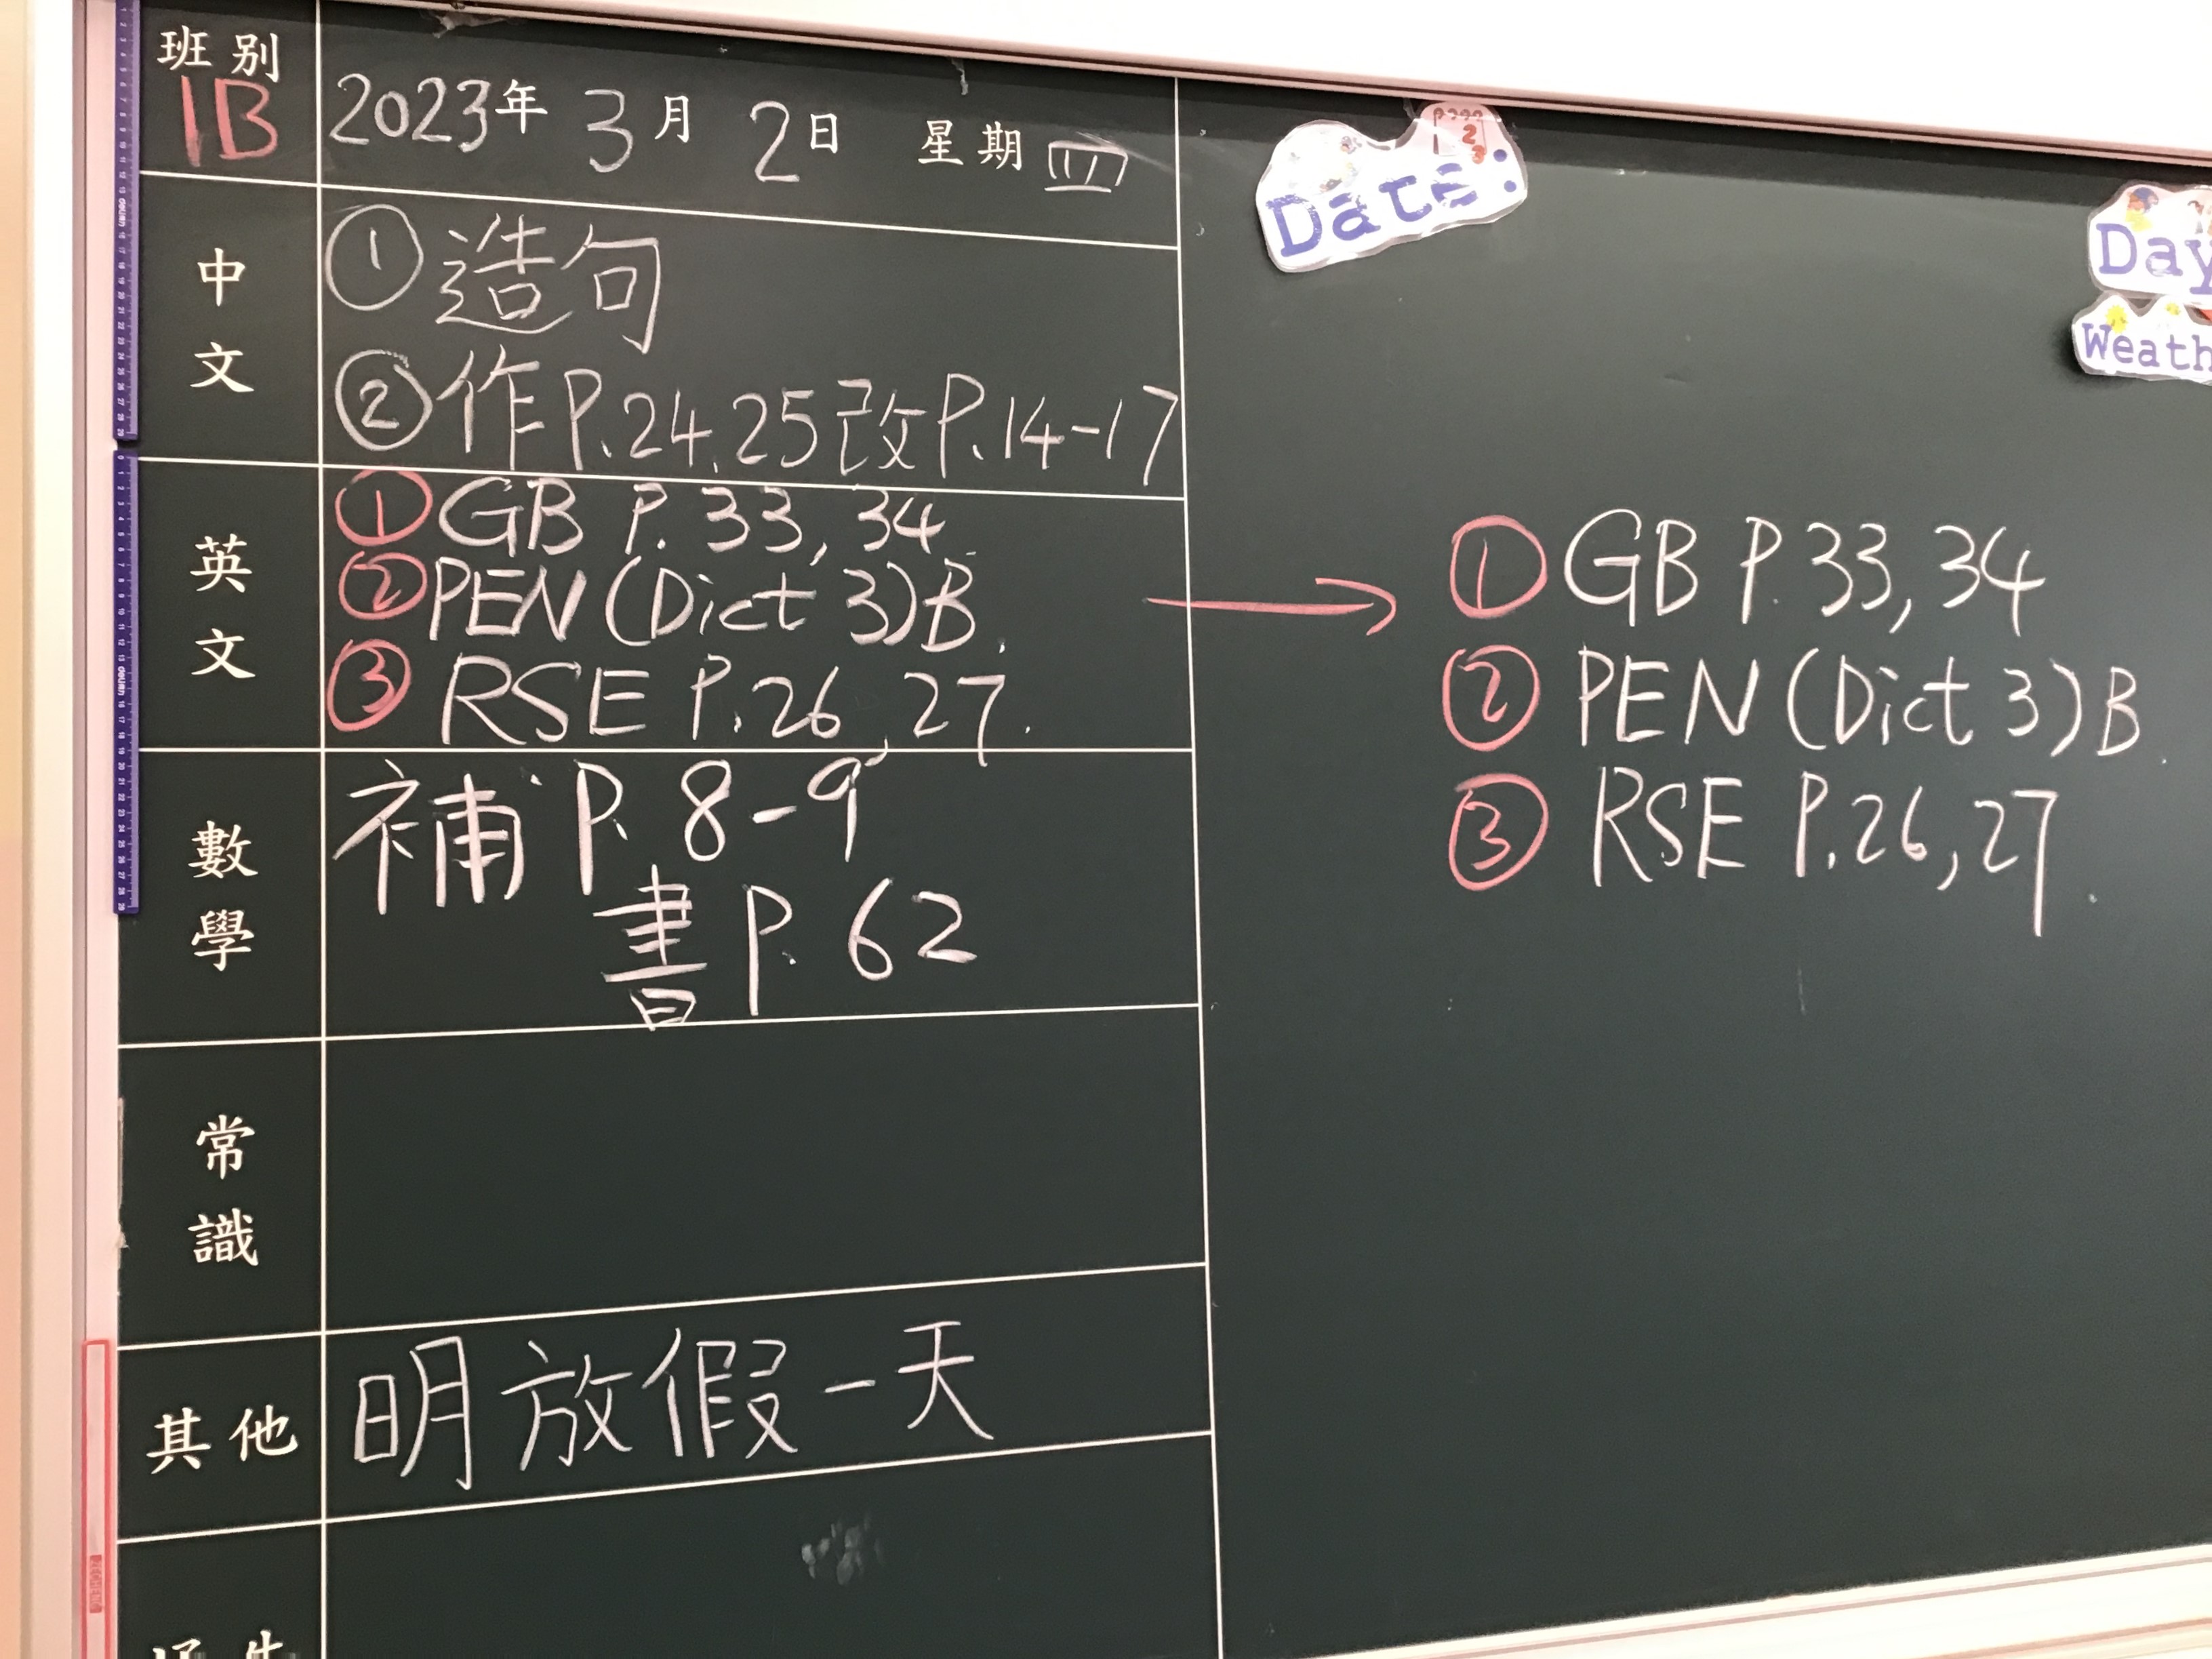 班別
1B
2023年 3月 2日 星期四
中文
① 造句
② 作P.24,25 改P.14-17
英文
① GB P. 33, 34
② PEN (Dict 3) B.
③ RSE P.26, 27.
數學
補 P. 8-9
書 P. 62
常識
其他
明放假一天
Date:
Day
Weath
① GB P. 33, 34
② PEN (Dict 3) B.
③ RSE P.26, 27.